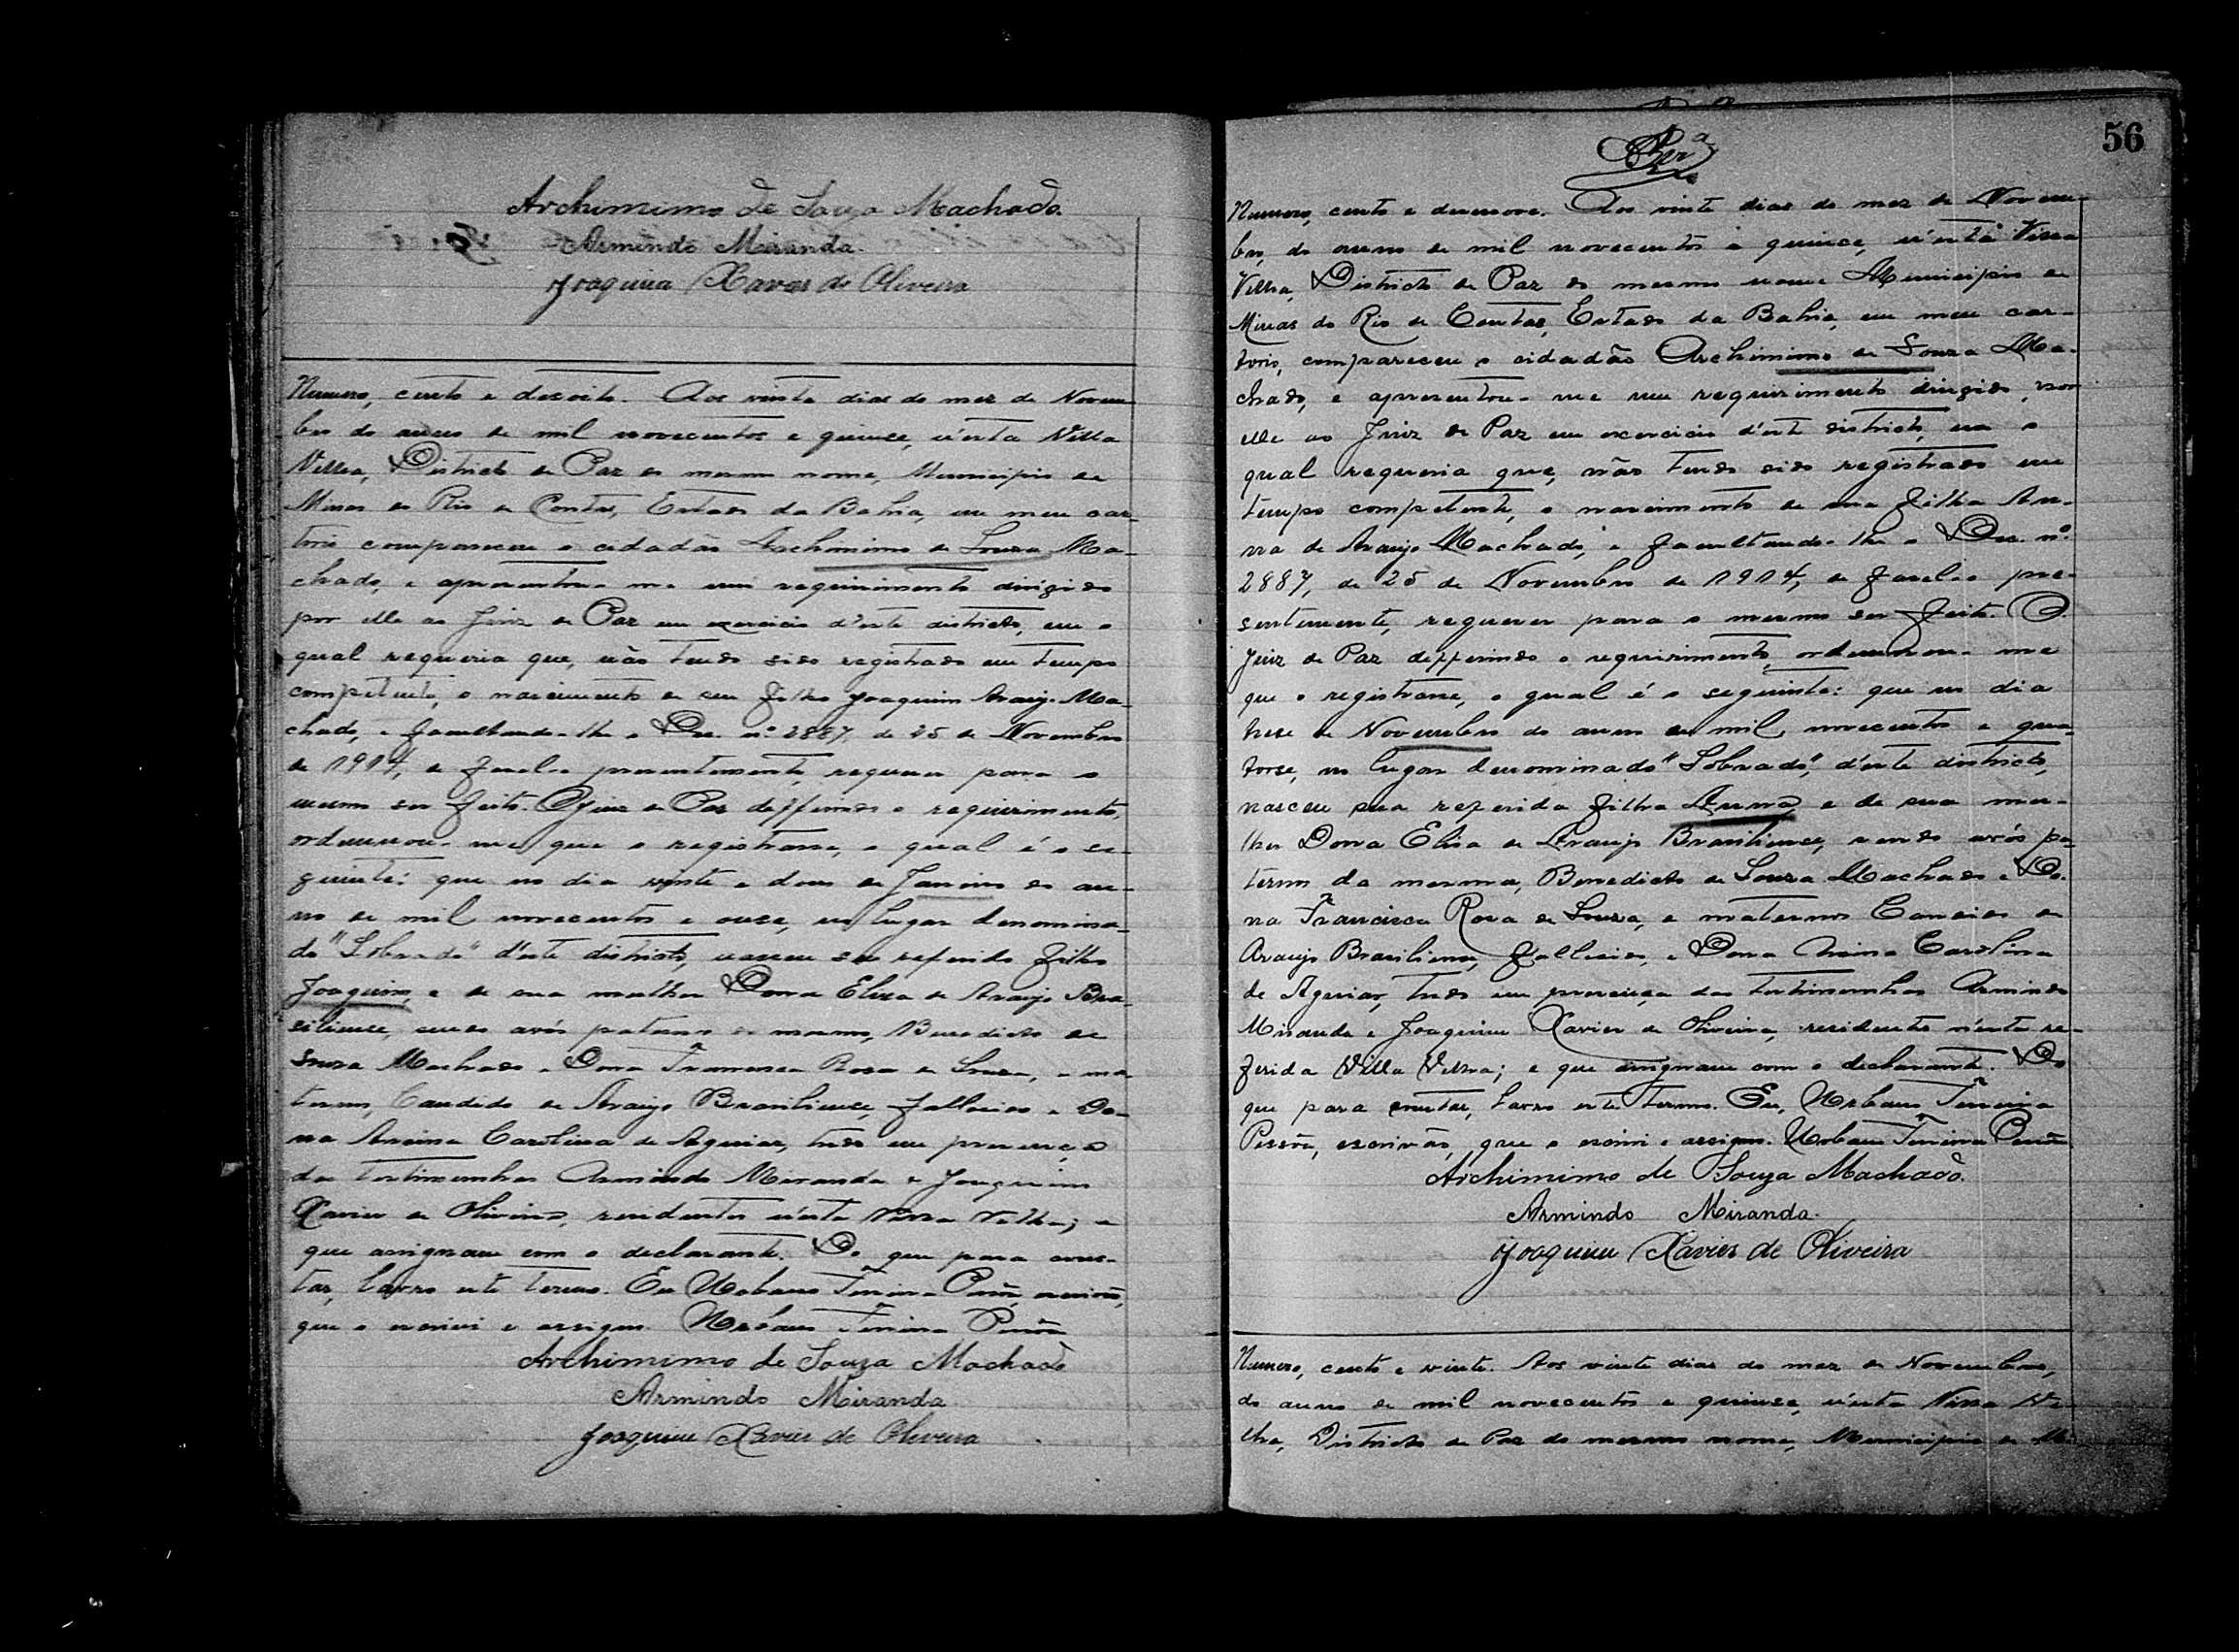 Archimimo de Souza Machado.
Armindo Miranda.
Joaquim Xavier de Oliveira
Numero, cento e dezoito. Aos vinte dias do mez de Novem-
bro do anno de mil novecentos e quinze, n'esta Villa
Velha, Districto de Paz do mesmo nome, Municipio de
Minas do Rio de Contas, Estado da Bahia, em meu car-
torio compareceu o cidadão Archimimo de Souza Ma-
chado, e apresentou-me um requerimento dirigido
por elle ao Juiz de Paz em exercicio d'este districto, em o
qual requeria que, não tendo sido registrado em tempo
competente, o nascimento de seu filho Joaquim Araujo Ma-
chado, e facultando-lhe o Dec. nº 2887, de 25 de Novembro
de 1914, de fazel-o presentemente, requerer para o
mesmo ser feito. O Juiz de Paz defferindo o requirimento,
ordennou-me que o registrasse, o qual é o se-
guinte: que no dia vinte e dous de Janeiro do an-
no de mil novecentos e onze, no lugar denomina-
do "Sobrado" d'este districto, nasceu seu referido filho
Joaquim, e de sua mulher Dona Elisa de Araujo Bra-
siliense, sendo avós paternos do mesmo, Benedicto de
Souza Machado e Dona Francisca Rosa de Souza, e ma-
ternos, Candido de Araujo Brasiliense, fallecido e Do-
na Anina Carolina de Aguiar, tudo em presença
das testimunhas Armindo Miranda e Joaquim
Xavier de Oliveira, residentes n'esta Villa Velha; e
que assignam com o declarante. Do que para cons-
tar, lavro este termo. Eu Urbano Teixeira Pessôa, escrivão,
que o escrivi e assigno. Urbano Teixeira Pessôa
Archimimo de Souza Machado
Armindo Miranda
Joaquim Xavier de Oliveira
56
Numero, cento e dezenove. Aos vinte dias do mez de Novem-
bro, do anno de mil novecentos e quinze, n'esta Villa
Velha, Districto de Paz do mesmo nome Municipio de
Minas do Rio de Contas, Estado da Bahia, em meu car-
torio, compareceu o cidadão Archimimo de Souza Ma-
chado, e apresentou-me um requerimento dirigido, por
elle ao Juiz de Paz em exercicio d'este districto, em o
qual requeria que, não tendo sido registrado em
tempo competente, o nascimento de sua filha An-
na de Araujo Machado, e facultando-lhe o Dec. nº
2887, de 25 de Novembro de 1914, de fazel-o pre-
sentemente, requerer para o mesmo ser feito. O
Juiz de Paz defferindo o requirimento, ordennou-me
que o registrasse, o qual é o seguinte: que no dia
treze de Novembro do anno de mil novecentos e qua-
torse, no lugar denominado "Sobrado", d'este districto,
nasceu sua referida filha Anna, e de sua mu-
lher Dona Elisa de Araujo Brasiliense, sendo avós pa-
ternos da mesma, Benedicto de Souza Machado e Do-
na Francisca Rosa de Souza, e maternos Candido de
Araujo Brasiliense, fallecido, e Dona Anina Carolina
de Aguiar, tudo em presença das testimunhas Armindo
Miranda e Joaquim Xavier de Oliveira, residentes n'esta re-
ferida Villa Velha; e que assignam com o declarante. Do
que para constar, lavro este termo. Eu, Urbano Teixeira
Pessôa, escrivão, que o escrivi e assigno. Urbano Teixeira Pessôa
Archimimo de Souza Machado.
Armindo Miranda.
Joaquim Xavier de Oliveira
Numero, cento e vinte. Aos vinte dias do mez de Novembro,
do anno de mil novecentos e quinze, n'esta Villa Ve-
lha, Districto de Paz do mesmo nome, Municipio de Mi-